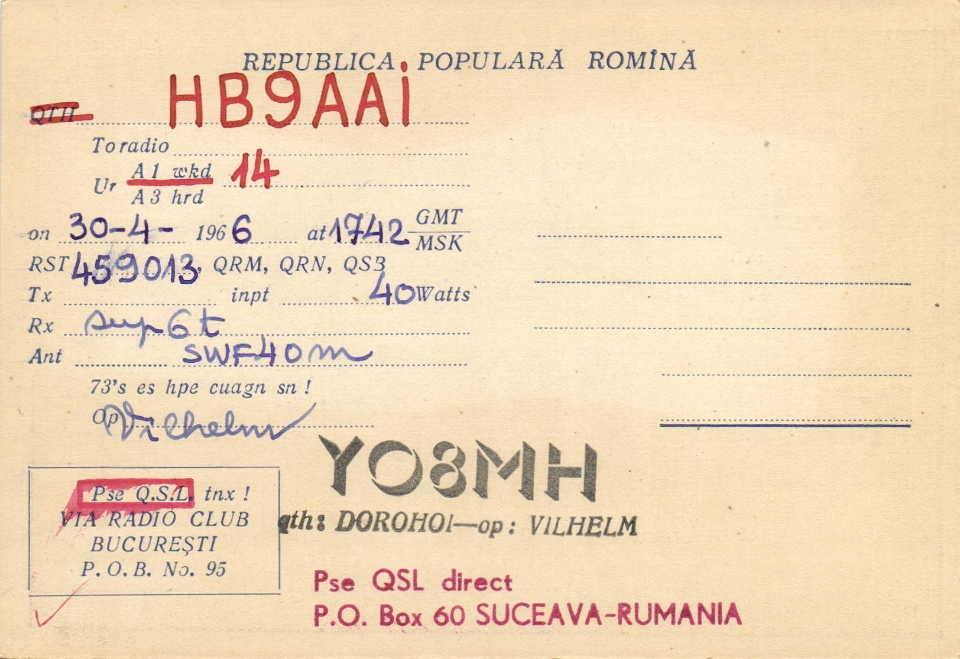 REPUBLICA POPULARĂ ROMÎNĂ
QTH HB9AAi
To radio
Ur A1 wkd 14
A3 hrd
on 30-4- 1966 at 1742 GMT
MSK
RST 459013, QRM, QRN, QSB
Tx inpt 40 Watts
Rx sup 6 t
Ant SWF 40 m
73's es hpe cuagn sn !
Op Vilhelm
YO8MH
qth: DOROHOI—op: VILHELM
Pse Q.S.L. tnx !
VIA RADIO CLUB
BUCUREŞTI
P.O.B. No. 95
Pse QSL direct
P.O. Box 60 SUCEAVA-RUMANIA